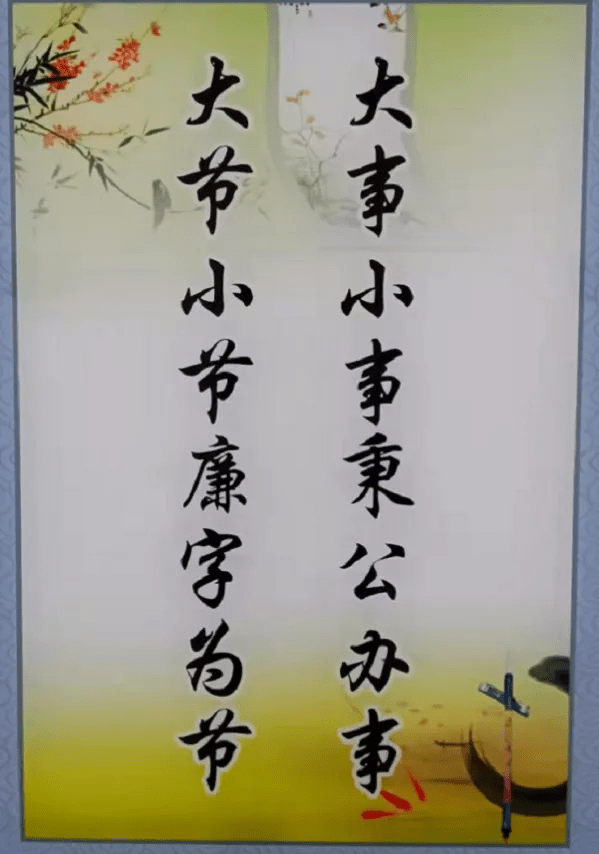 大事小事秉公办事
大节小节廉字为节